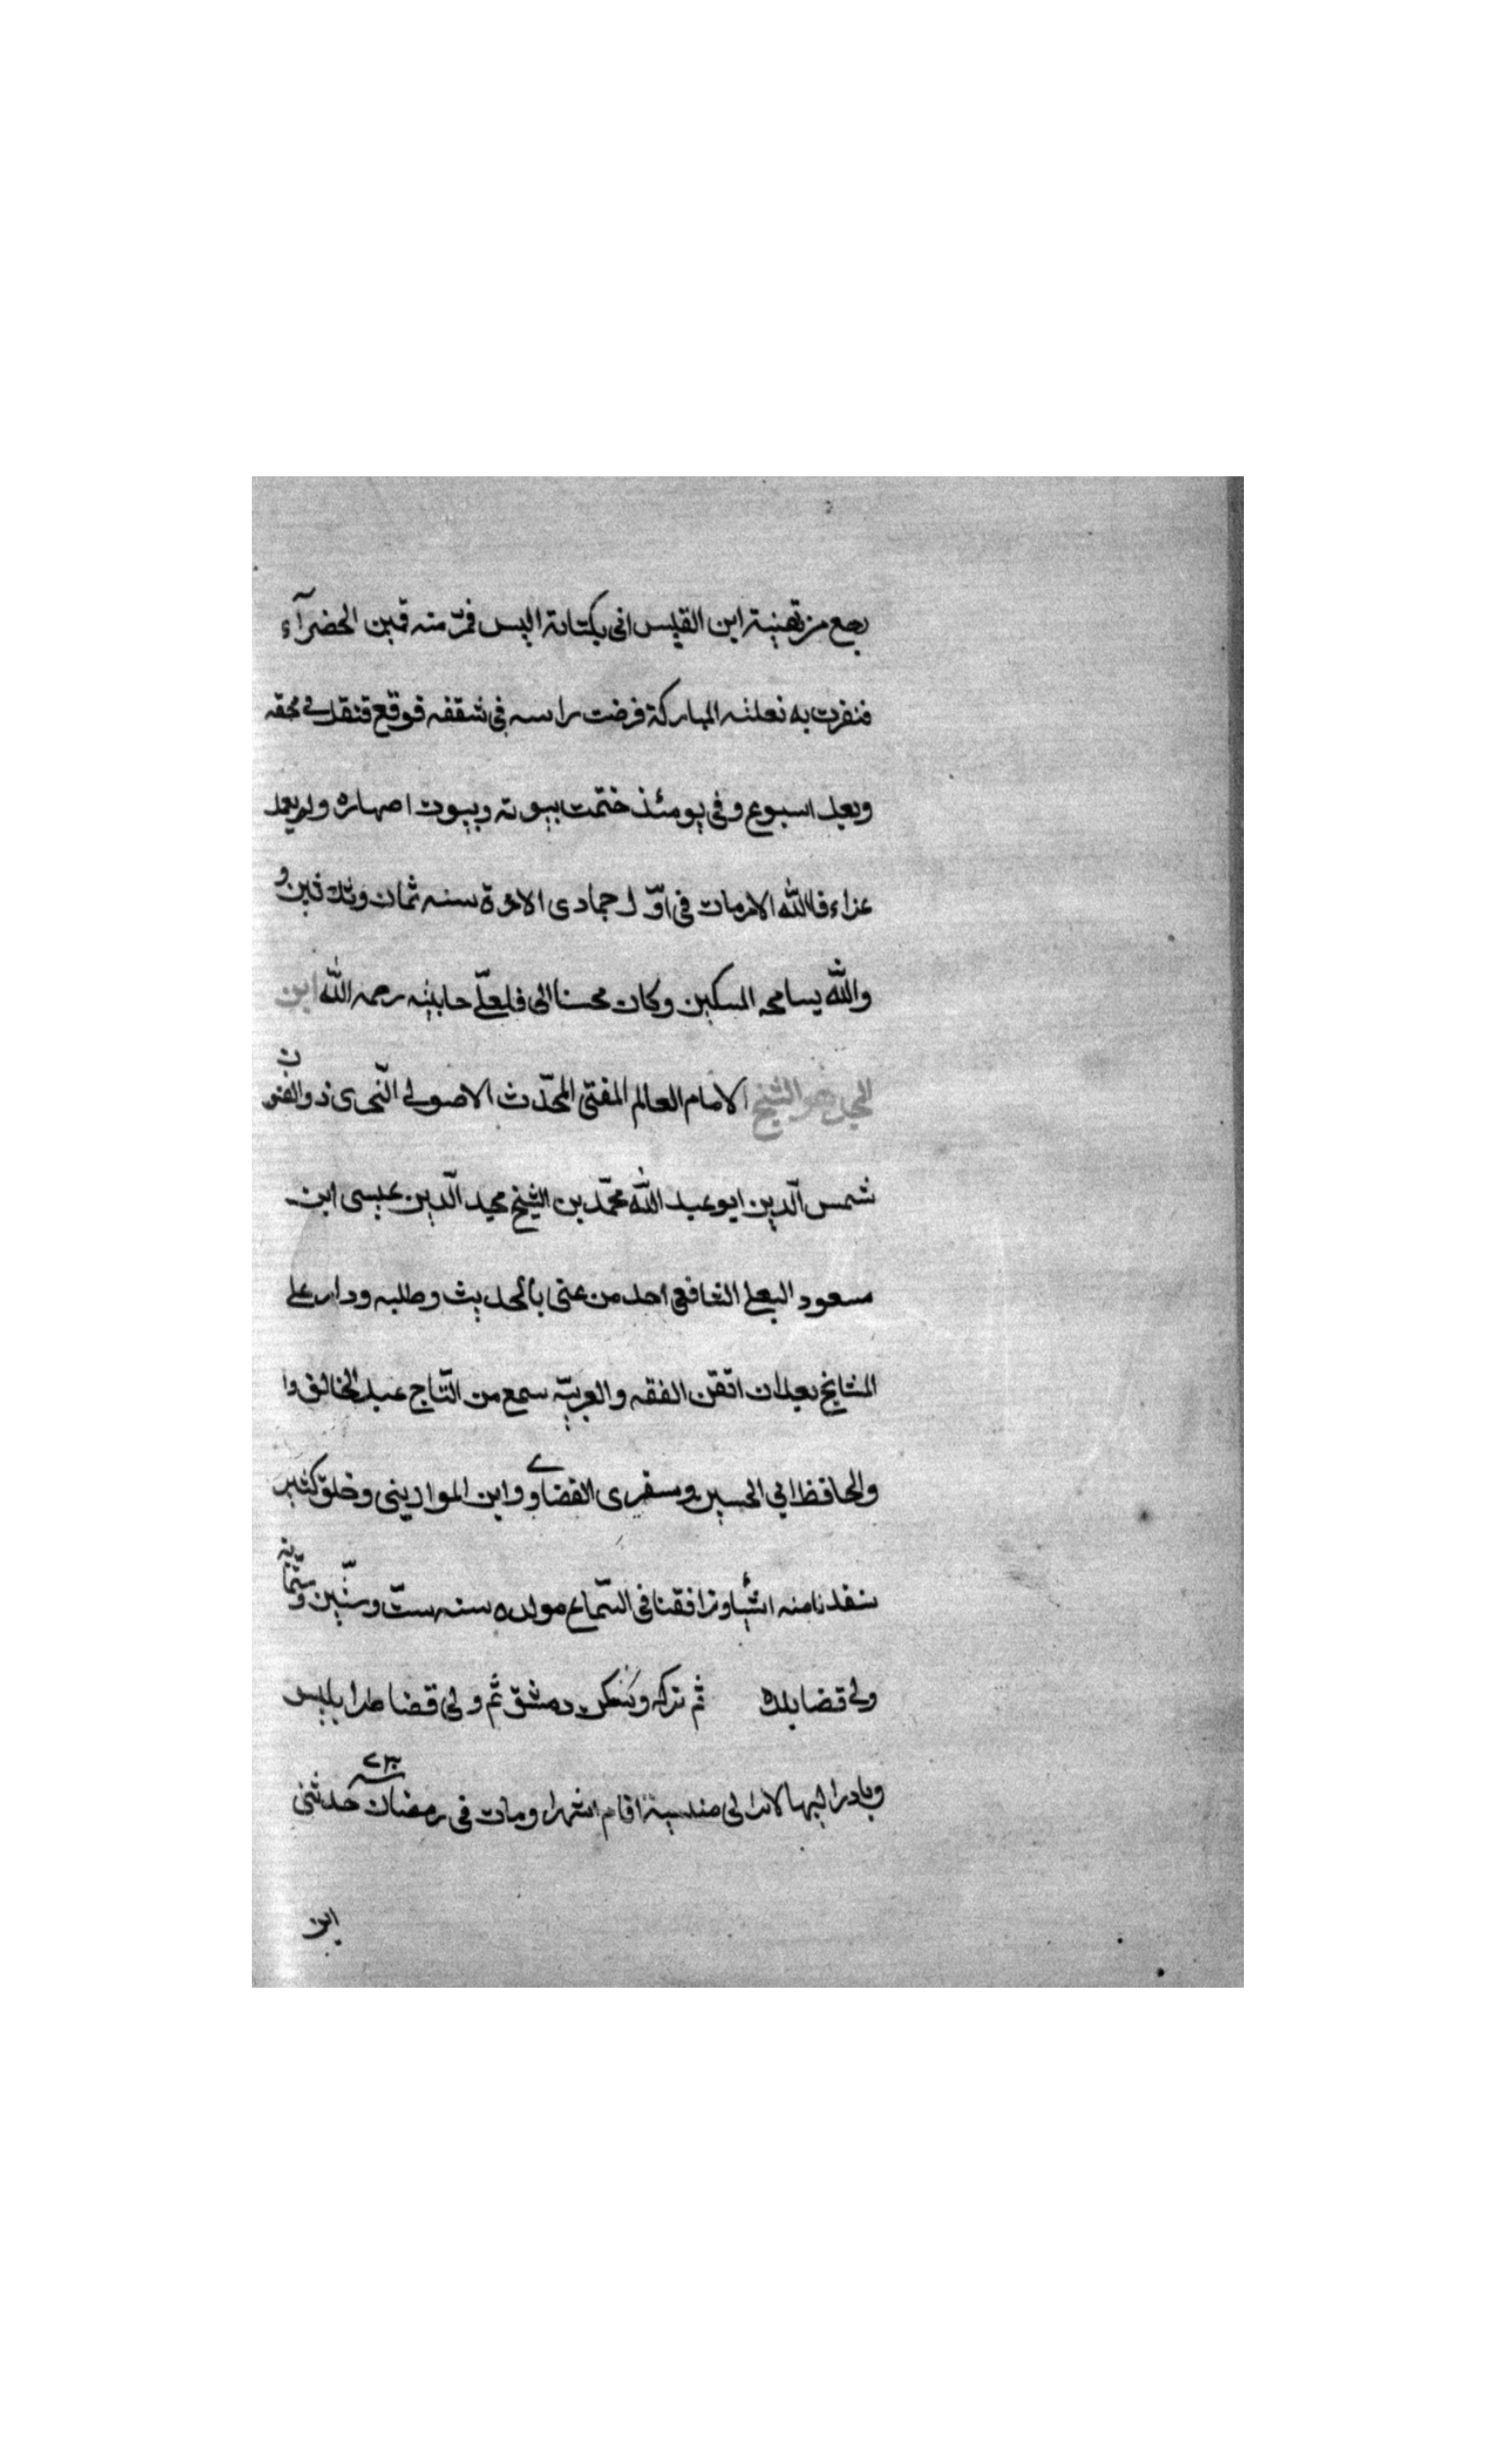 رجع من تهنية ابن القليس انى بكتانة اليس فمرّ منه قمين الحضرآء
فنفرت به نعلته المباركة فرضت راسه فى شقفه فوقع فنقل فى محفه
وبعد اسبوع وفى يومئذ ختمت بيوته وبيوت اصهاره ولم يعمد
عزاء فلله الامر مات فى اوّل جمادى الاخرة سنه ثمان وثلاثين و
والله يسامحه المسكين وكان محسنا الى فلعلّى حابيته رحمه الله ابن
المجد هو الشيخ الامام العالم المفتى المحدّث الاصولى النّحوى ذوالفنون
شمس الدّين ابو عبد الله محمّد بن الشيخ مجيد الدّين عيسى ابن
مسعود البعلى الشافعى احد من عنى بالحديث وطلبه ودار على
المشايخ بعد ان اتقن الفقه والعربيّه سمع من التّاج عبد الخالق وا
والحافظ ابي الحسين و القضاوى وابن الموادينى وخلق كثير
منه اشيا ورافقنا فى السّماع مولده سنه ستّ وستّين وستّمائة
ولى قضا بلده ثم تركه وسكن دمشق ثم ولى قضا طرابليس
وبادر اليها اقام اشهرا ومات فى رمضان سنه ٧٣٠ حدثنى
ابن